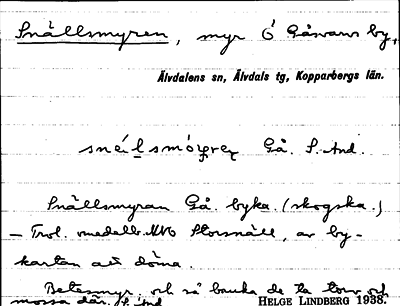 Snällsmyren, myr Ö Gåsvarv by,
Älvdalens sn, Älvdals tg, Kopparbergs län.
Gå. S. And.
Snällsmyran Gå. byka. (skogska.)
– Trol. medelb. Storsnäll, av by-
kartan att döma.
Betesmyr och så bruka de ta torv och
mossa där. S. And. HELGE LINDBERG 1938.